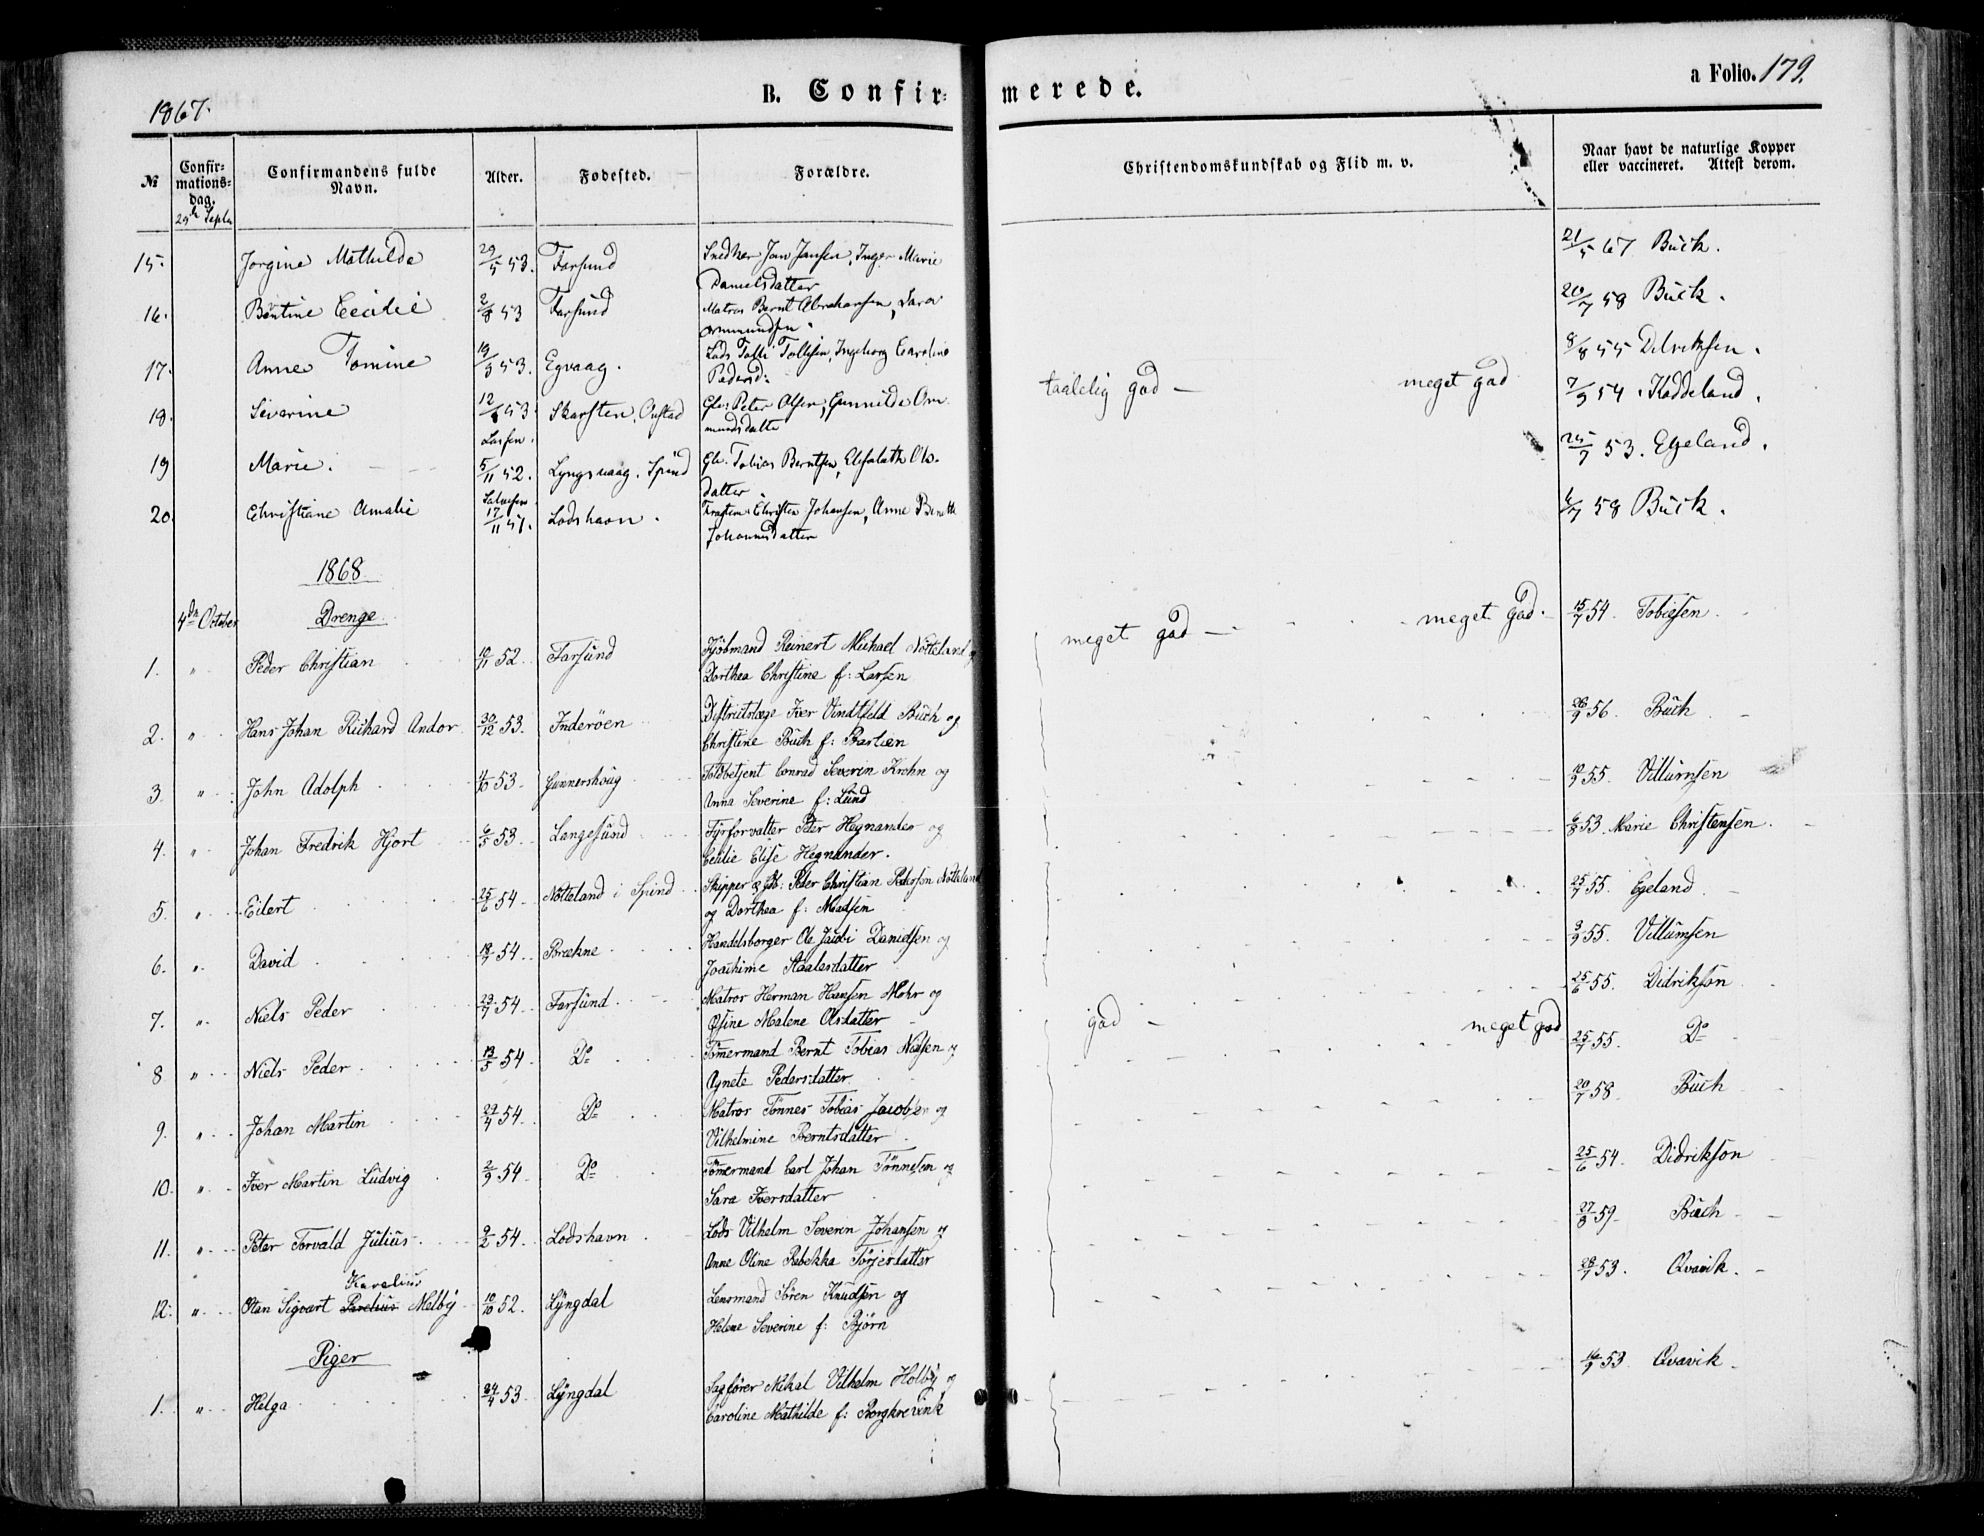 1867.
B. Confirmerede.
a Folio. 179.
№
Confirmationsdag.
Confirmandens fulde Navn.
Alder.
Fødested.
Forældre.
Christendomskundskab og Flid m. v.
Naar havt de naturlige Kopper eller vaccineret. Attest derom.
29de Septbr
15. Jorgine Mathilde 29/5 53. Farsund Snedker Jan Jansen, Inger Marie 21/5 67 Buck.
Danielsdatter
16. Bentine Cecilie 2/8 53 Farsund Matros Bernt Abrahamsen, Sara 20/7 58 Buck.
Ommundsen.
17. Anne Tomine 19/3 53. Egvaag. Lods Tolli Tollisen, Ingeborg Caroline 8/8 55 Didriksen.
Pedersd:
taalelig god — meget god
18. Severine 12/8 53. Skarsten, Peter Olsen, Gunnilde Om- 7/9 54. Haddeland.
mundsdatter
Larsen.
19 Marie. 5/11 52. Lyngsvaag. Spind Tobias Berntsen, Elisabeth Ols- 25/7 53. Egeland.
datter
Salvesen
20. Christiane Amalie 17/11 51. Lodshavn. Christen Johansen, Anne Berntth 6/7 58 Buck.
Johannesdatter
1868.
4de October Drenge.
1. " Peder Christian 10/11 52. Farsund Kjøbmand Reinert Michael Nøtteland og meget god — meget god. 15/7 54. Tobiesen.
Dorthea Christine f: Larsen
2. " Hans Johan Richard Andor 30/12 53. Inderöen Districtslæge Iver Vindtfeld Buch og 26/9 56. Buch
Christine Buch f: Bartien
3. " John Adolph 4/10 53. Gunnershoug Toldbetjent Conrad Severin Krehn og 10/9 55. Villumsen
Anna Severine f: Lund
4. " Johan Fredrik Hjort 6/5 53. Langesund Fyrforvalter Peter Hegnander og 6/8 53. Marie Christensen.
Cecilie Elise Hegnander.
5. " Eilert 25/6 54. Nøtteland i Spind Skipper Peder Christian Pederson Nøtteland 25/7 55. Egeland
og Dorthea f: Madsen
6. " David 18/7 54. Brækne Handelsborger Ole Jacobi Danielsen og 3/9 55. Villumsen
Joachime Staalesdatter
7. " Niels Peder 23/7 54. Farsund. Matros Herman Hansen Mohr og god — meget god 25/6 55. Didrikson
Osine Malene Olsdatter
8 " Niels Peder 13/5 54. Do Tømmermand Bernt Tobias Nilsen og 25/7 55. Do
Agnete Pedersdatter
9. " Johan Martin 27/4 54. Do Matros Tönnes Tobias Jacobsen og 20/7 58. Buch
Vilhelmine Berntsdatter
10. " Iver Martin Ludvig 2/9 54. Do Tømmermand Carl Johan Tönnesen og 25/6 54. Didrikson
Sara Iversdatter
11. " Peter Torvald Julius 9/2 54. Lodshavn Lods Vilhelm Severin Johansen og 27/8 59. Buch
Anne Oline Rebekka Torjersdatter
Karelius
12. " Stan Sigvart Parelius Melby 10/10 52. Lyngdal Lensmand Sören Knudsen og 28/7 53. Qvavik.
Helene Severine f: Bjørn
Piger
1. " Helga 24/4 53. Lyngdal Sagfører Mikal Vilhelm Holby og 16/9 53. Qvavik
Caroline Mathilde f: Borgkrevink